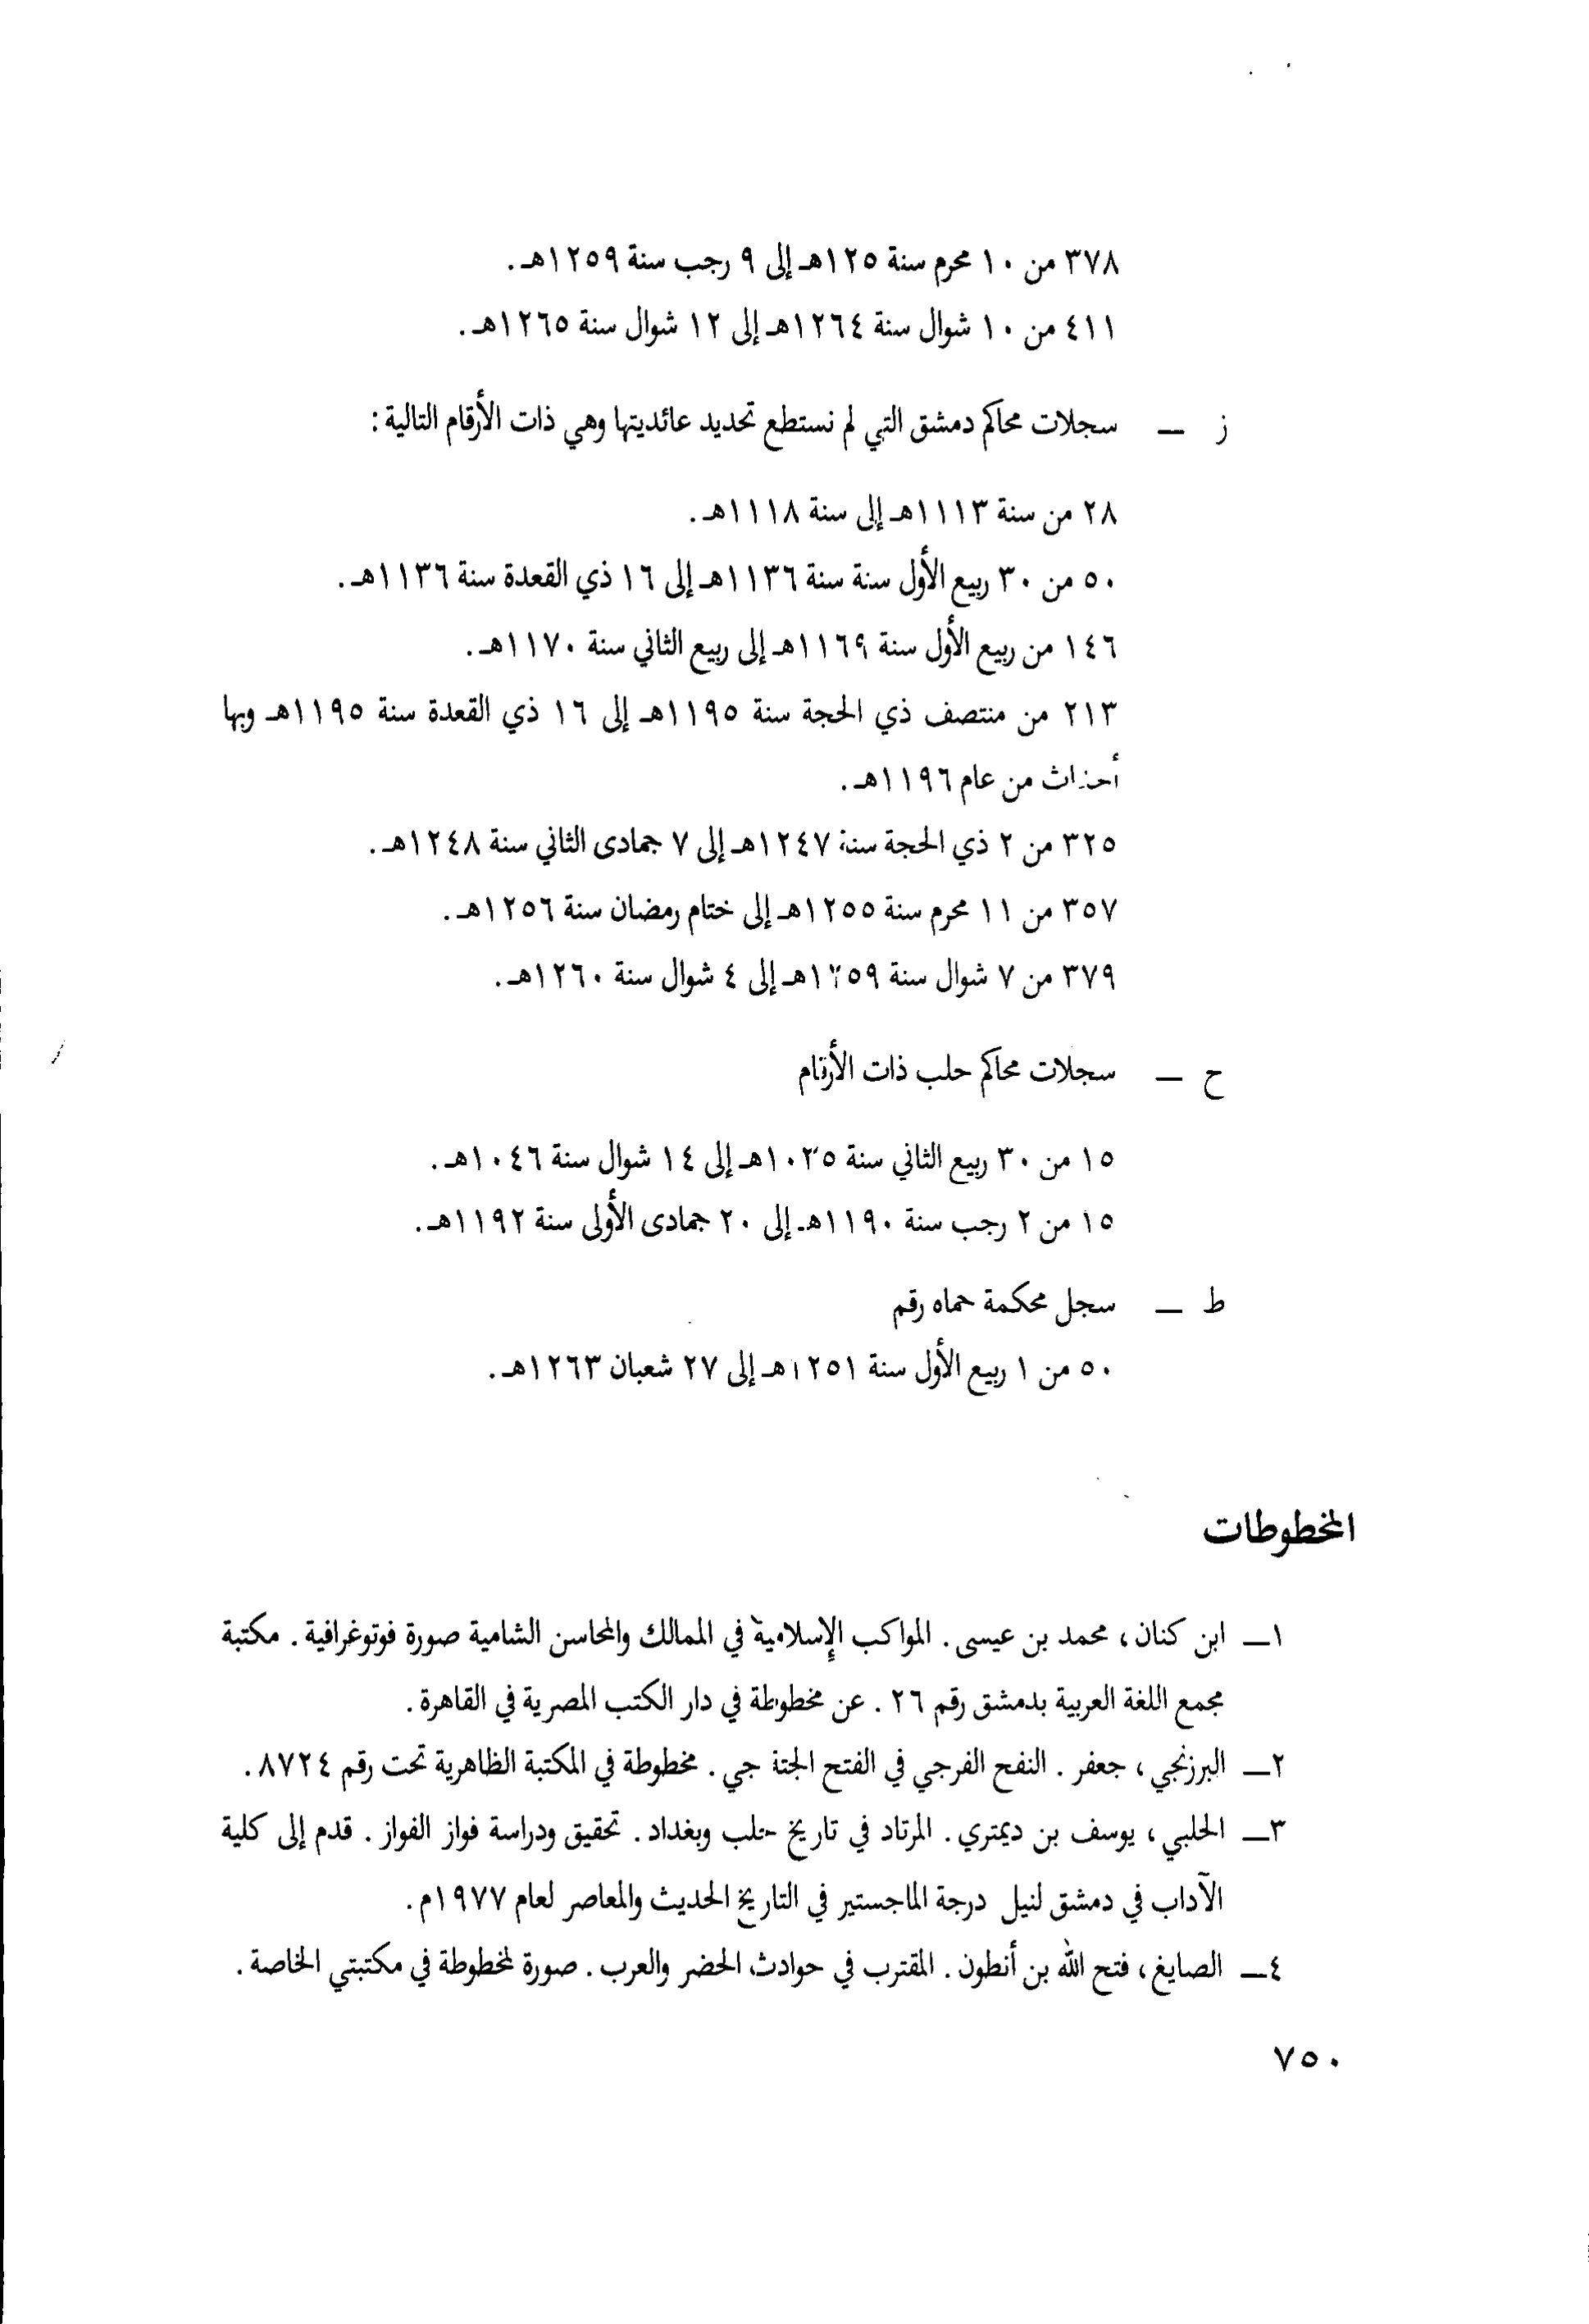 ٣٧٨ من ١٠ محرم سنة ١٢٥هـ إلى ٩ رجب سنة ١٢٥٩هـ.
٤١١ من ١٠ شوال سنة ١٢٦٤هـ إلى ١٢ شوال سنة ١٢٦٥هـ.
ز ــ سجلات محاكم دمشق التي لم نستطع تحديد عائديتها وهي ذات الأرقام التالية:
٢٨ من سنة ١١١٣هـ إلى سنة ١١١٨هـ.
٥٠ من ٣٠ ربيع الأول سنة سنة ١١٣٦هـ إلى ١٦ ذي القعدة سنة ١١٣٦هـ.
١٤٦ من ربيع الأول سنة ١١٦٩هـ إلى ربيع الثاني سنة ١١٧٠هـ.
٢١٣ من منتصف ذي الحجة سنة ١١٩٥هـ إلى ١٦ ذي القعدة سنة ١١٩٥هـ وبها
أحداث من عام ١١٩٦هـ.
٣٢٥ من ٢ ذي الحجة سنة ١٢٤٧هـ إلى ٧ جمادى الثاني سنة ١٢٤٨هـ.
٣٥٧ من ١١ محرم سنة ١٢٥٥هـ إلى ختام رمضان سنة ١٢٥٦هـ.
٣٧٩ من ٧ شوال سنة ١٢٥٩هـ إلى ٤ شوال سنة ١٢٦٠هـ.
ح ــ سجلات محاكم حلب ذات الأرقام
١٥ من ٣٠ ربيع الثاني سنة هـ إلى ١٤ شوال سنة ١٠٤٦هـ.
١٥ من ٢ رجب سنة ١١٩٠هـ إلى ٢٠ جمادى الأولى سنة ١١٩٢هـ.
ط ــ سجل محكمة حماه رقم
٥٠ من ١ ربيع الأول سنة ١٢٥١هـ إلى ٢٧ شعبان ١٢٦٣هـ.
المخطوطات
١ــ ابن كنان، محمد بن عيسى. المواكب الإسلامية في الممالك والمحاسن الشامية صورة فوتوغرافية. مكتبة
مجمع اللغة العربية بدمشق رقم ٢٦. عن مخطوطة في دار الكتب المصرية في القاهرة.
٢ــ البرزنجي، جعفر. النفح الفرجي في الفتح الجته جي. مخطوطة في المكتبة الظاهرية تحت رقم ٨٧٢٤.
٣ــ الحلبي، يوسف بن ديمتري. المرتاد في تاريخ حلب وبغداد. تحقيق ودراسة فواز الفواز. قدم إلى كلية
الآداب في دمشق لنيل درجة الماجستير في التاريخ الحديث والمعاصر لعام ١٩٧٧م.
٤ــ الصايغ، فتح الله بن أنطون. المقترب في حوادث الحضر والعرب. صورة لمخطوطة في مكتبتي الخاصة.
٧٥٠